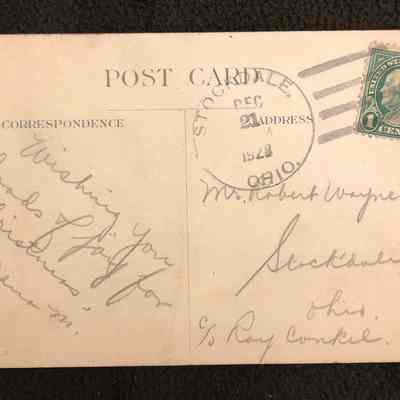 POST CARD
CORRESPONDENCE
ADDRESS
STOCKDALE,
DEC
21
A
1923
OHIO.
UNITED STATES
1
CEN
Wishing You
loads of joy for
Christmas
M.
Mr. Robert Wayne
Stockdale
Ohio.
c/o Ray Conkel.